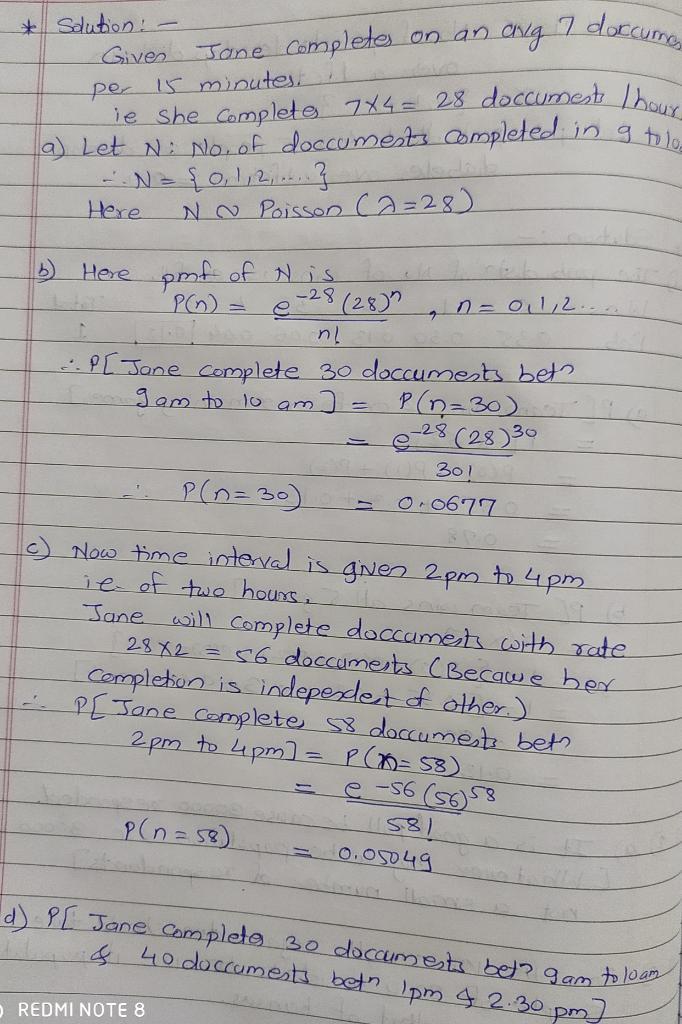 * Solution: —
Given Jane completes on an avg 7 doccumes
per 15 minutes.
ie she completes 7×4 = 28 doccuments /hour
a) Let N: No. of doccuments completed in 9 to 10
∴ N = {0,1,2,....}
Here N ~ Poisson (λ=28)
b) Here pmf of N is
P(n) = e^-28 (28)^n / n! , n = 0,1,2....
∴ P[ Jane complete 30 doccuments betn
9am to 10 am ] = P(n=30)
= e^-28 (28)^30 / 30!
∴ P(n=30) = 0.0677
c) Now time interval is given 2pm to 4pm
i.e. of two hours,
Jane will complete doccuments with rate
28×2 = 56 doccuments (Because her
completion is independent of other.)
∴ P[ Jane completes 58 doccuments betn
2pm to 4pm] = P(n=58)
= e^-56 (56)^58 / 58!
P(n=58) = 0.05049
d) P[ Jane completes 30 doccuments betn 9am to 10am
& 40 doccuments betn 1pm & 2.30 pm]
REDMI NOTE 8